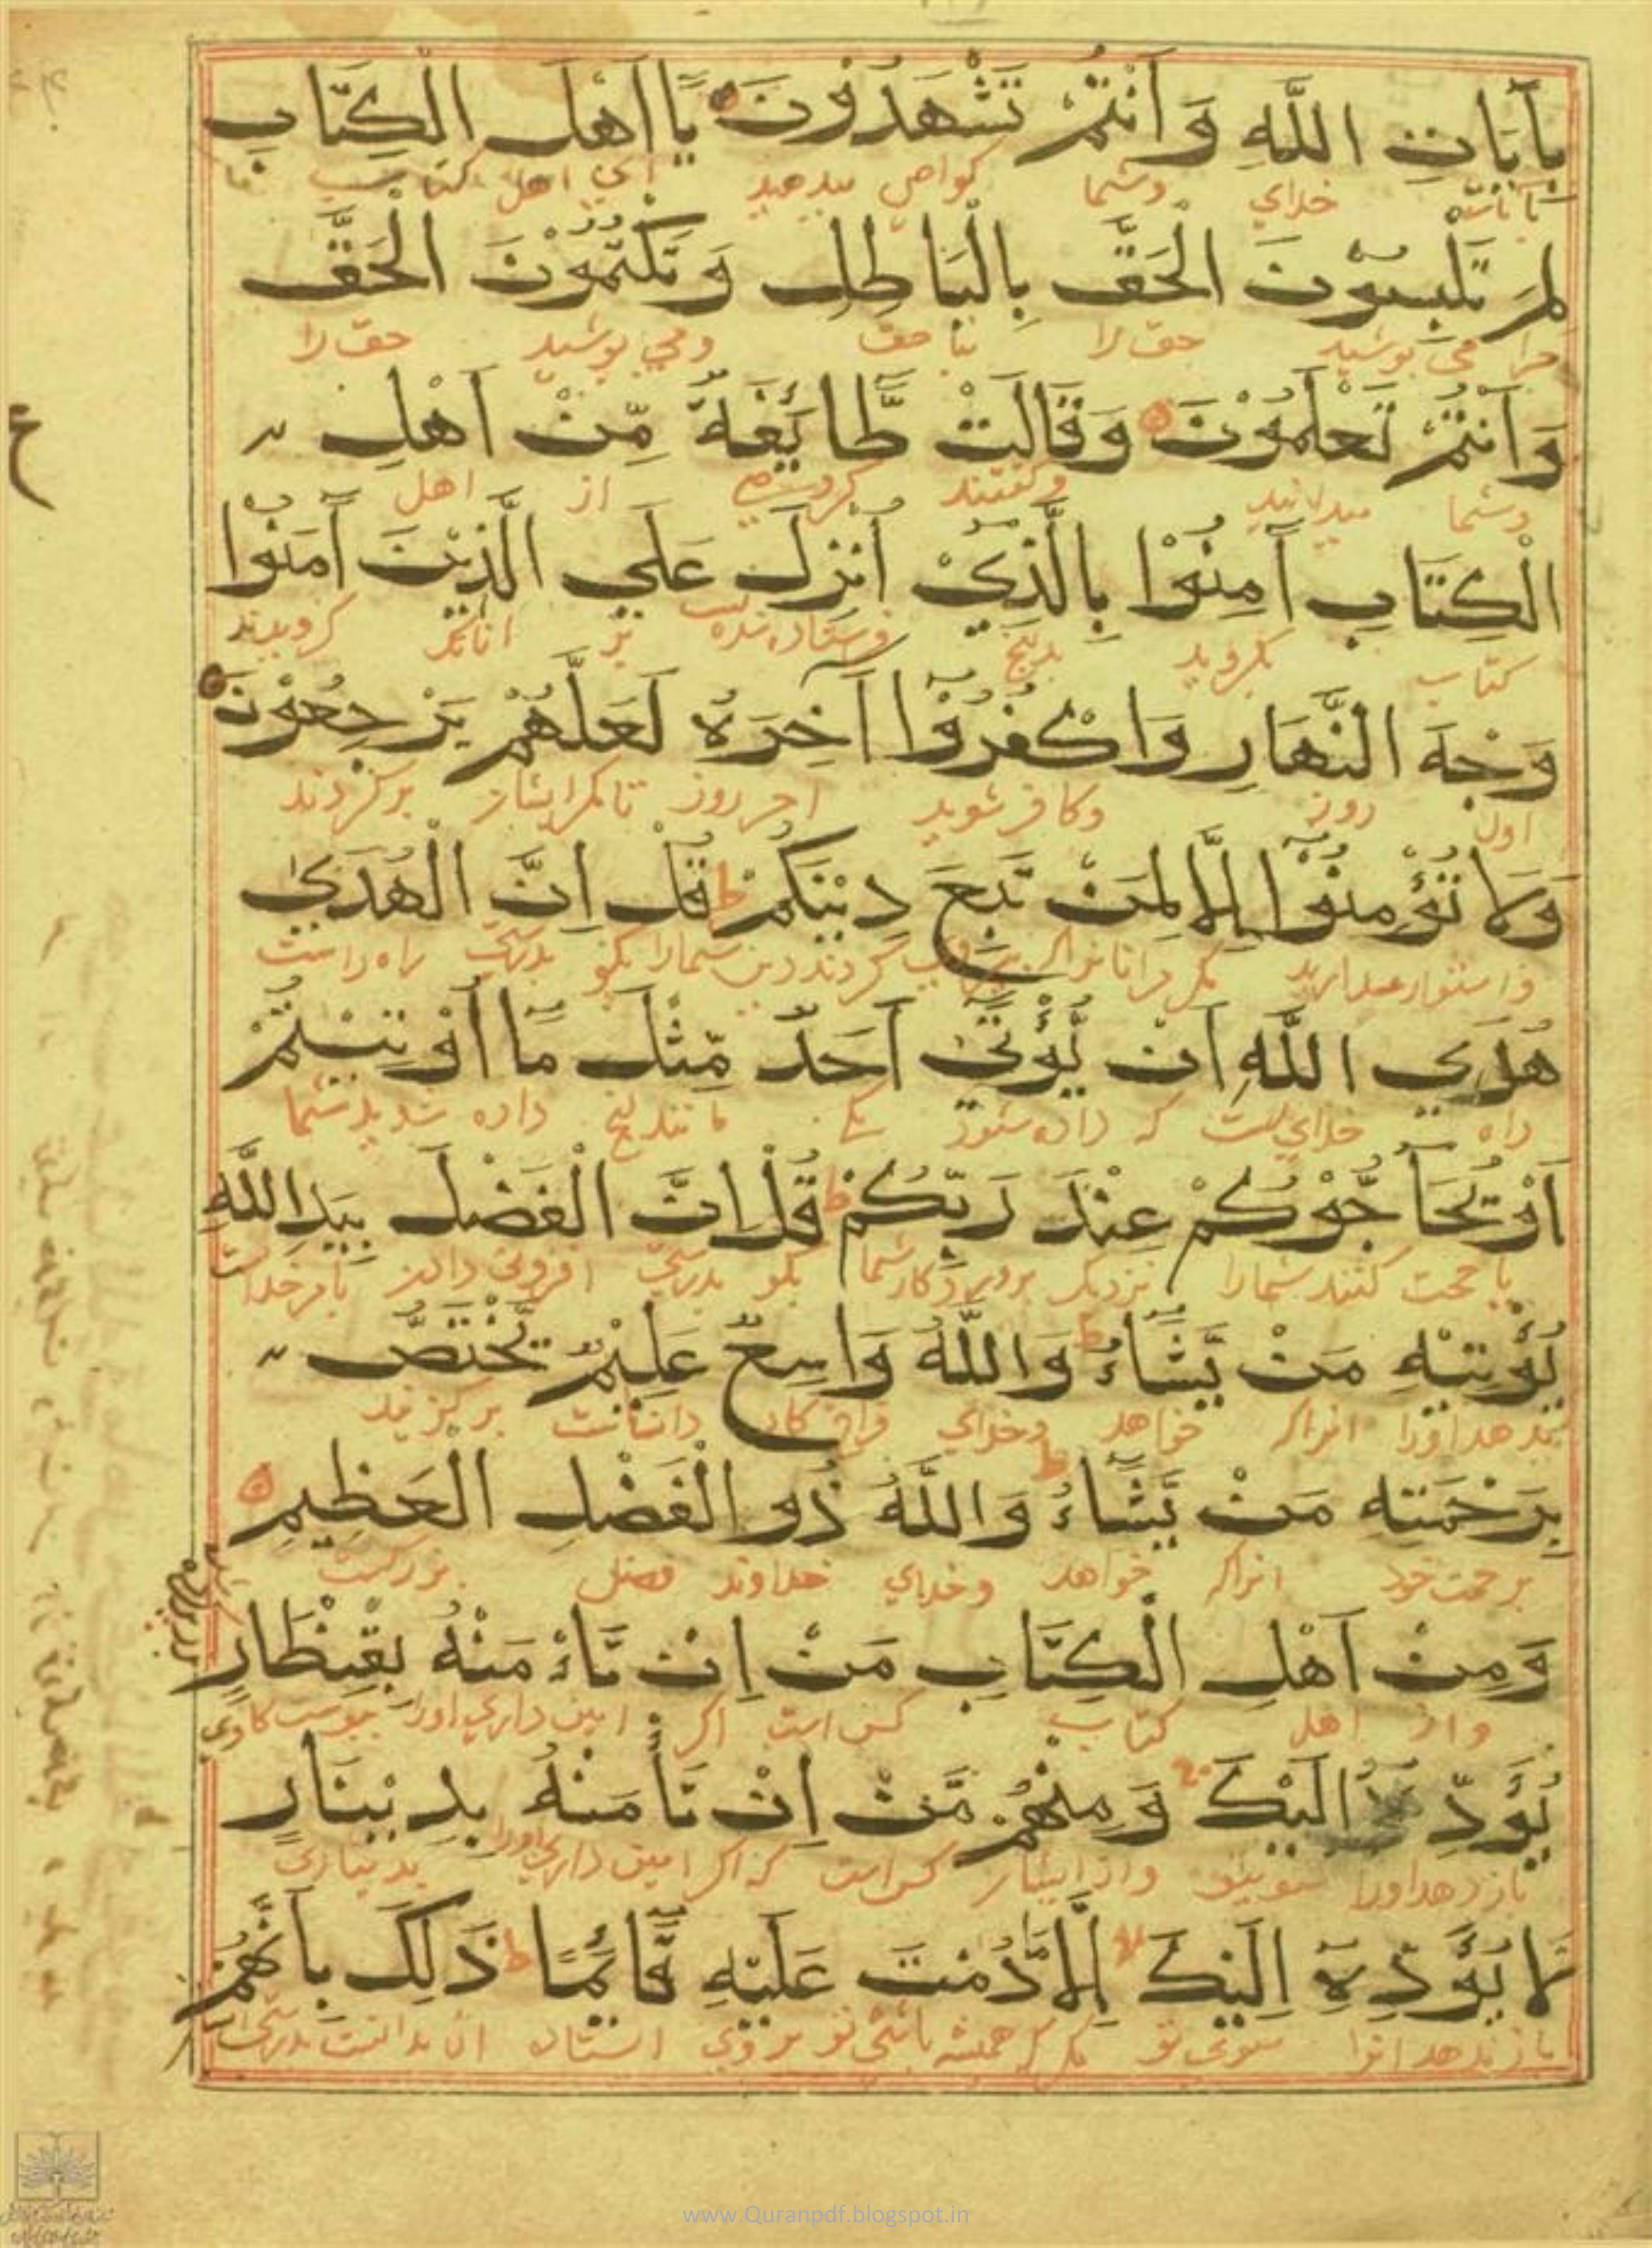 بِآيَاتِ اللَّهِ وَ اَنْتُمْ تَشْهَدُوْنَ يَا اَهْلَ الْكِتَابِ
بآيات خدای وشما كواهی ميدهيد ای اهل كتاب
لِمَ تَلْبِسُوْنَ الْحَقَّ بِالْبَاطِلِ وَ تَكْتُمُوْنَ الْحَقَّ
چرا می پوشيد حق را بنا حق ومی پوشيد حق را
وَ اَنْتُمْ تَعْلَمُوْنَ وَقَالَتْ طَّائِفَةٌ مِّنْ اَهْلِ
وشما ميدانيد وكفتند كروهی از اهل
الْكِتَابِ آمِنُوْا بِالَّذِيْ اُنْزِلَ عَلَي الَّذِيْنَ آمَنُوْا
كتاب بكرويد بدانچ فرستاده شده است بر آنانكه كرويدند
وَجْهَ النَّهَارِ وَاكْفُرُوْا آخِرَهُ لَعَلَّهُمْ يَرْجِعُوْنَ
اول روز وكافر شويد آخر روز تا مكر ايشان بركردند
وَلَا تُؤْمِنُوْا اِلَّا لِمَنْ تَبِعَ دِيْنَكُمْ ط قُلْ اِنَّ الْهُدَيٰ
واستوار مداريد مكر مرانانرا كه پيروی كردند دين شمارا بكو بدرستی راه راست
هُدَي اللَّهِ اَنْ يُّؤْتٰيَ اَحَدٌ مِّثْلَ مَا اُوْتِيْتُمْ
راه خدايست كه داده شود يكی مانند انچ داده شديد شما
اَوْ يُحَآجُّوْكُمْ عِنْدَ رَبِّكُمْ ط قُلْ اِنَّ الْفَضْلَ بِيَدِ اللَّهِ
يا حجت كنند شمارا نزديك پروردكار شما بكو بدرستی افزونی دادن بامر خداست
يُؤْتِيْهِ مَنْ يَّشَاءُ ط وَاللَّهُ وَاسِعٌ عَلِيْمٌ يَّخْتَصُّ
بدهد اورا انراكه خواهد وخدای فراخ كار داناست بركزيند
بِرَحْمَتِهِ مَنْ يَّشَاءُ ط وَاللَّهُ ذُو الْفَضْلِ الْعَظِيْمِ
برحمت خود انراكه خواهد وخدای خداوند فضل بزركست
وَمِنْ اَهْلِ الْكِتَابِ مَنْ اِنْ تَاْمَنْهُ بِقِنْطَارٍ
واز اهل كتاب كس است اكر امين داری اورا بپوست كاوی
يُؤَدِّهِ اِلَيْكَ وَ مِنْهُمْ مَّنْ اِنْ تَأْمَنْهُ بِدِيْنَارٍ
باز دهد اورا سوی تو واز ايشان كس است كه اكر امين داری اورا بديناری
لَا يُؤَدِّهِ اِلَيْكَ اِلَّا مَا دُمْتَ عَلَيْهِ قَائِمًا ط ذَلِكَ بِاَنَّهُمْ
باز ندهد انرا سوی تو مكر كه هميشه باشی تو بروی استاده
www.Quranpdf.blogspot.in